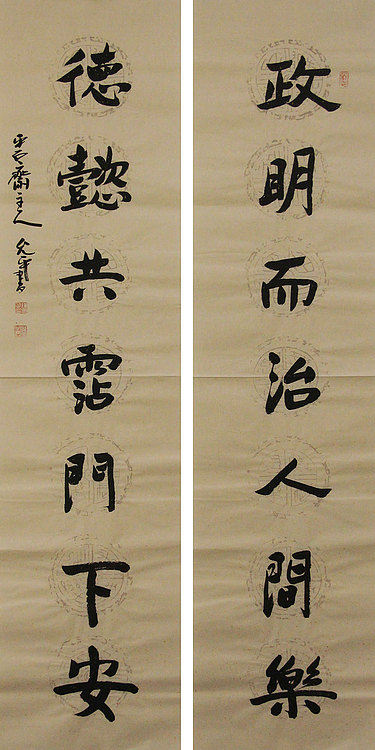 政明而治人間樂
德懿共霑門下安
齋主人